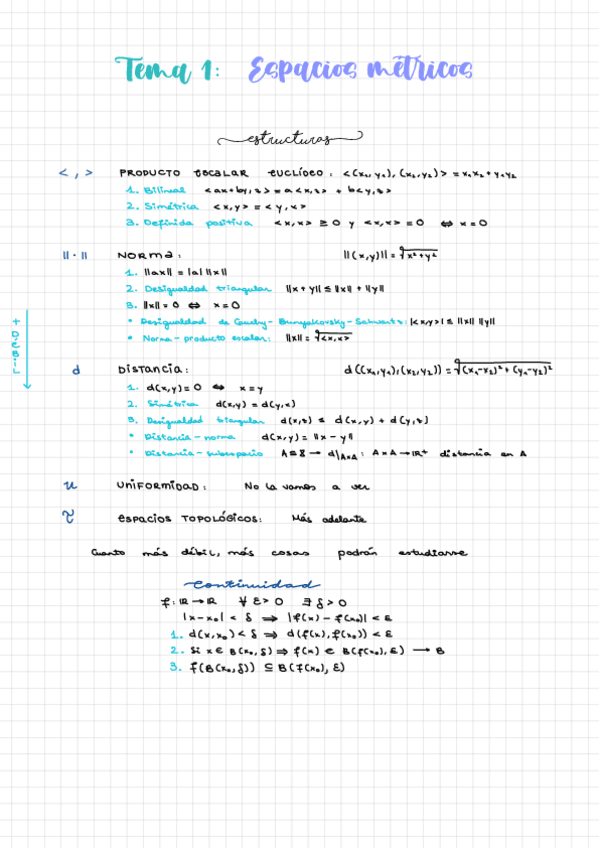 Tema 1: Espacios métricos
estructuras
< , > PRODUCTO ESCALAR EUCLÍDEO: <(x₁, y₁), (x₂, y₂)> = x₁x₂ + y₁y₂
1. Bilineal <ax+by, z> = a<x, z> + b<y, z>
2. Simétrica <x, y> = <y, x>
3. Definida positiva <x, x> ≥ 0 y <x, x> = 0 ⇔ x = 0
||·|| NORMA: ||(x, y)|| = √x²+y²
1. ||ax|| = |a| ||x||
2. Desigualdad triangular ||x + y|| ≤ ||x|| + ||y||
3. ||x|| = 0 ⇔ x = 0
• Desigualdad de Cauchy - Bunyakovsky - Schwartz: |<x,y>| ≤ ||x|| ||y||
• Norma - producto escalar: ||x|| = √<x, x>
+ DÉBIL
d DISTANCIA: d((x₁, y₁), (x₂, y₂)) = √(x₁-x₂)² + (y₁-y₂)²
1. d(x, y) = 0 ⇔ x = y
2. Simétrica d(x,y) = d(y,x)
3. Desigualdad triangular d(x, z) ≤ d(x, y) + d(y, z)
• Distancia - norma d(x, y) = ||x - y||
• Distancia - subespacio A ⊆ X → d|A×A : A×A → IR⁺ distancia en A
u UNIFORMIDAD: No la vamos a ver
τ ESPACIOS TOPOLÓGICOS: Más adelante
Cuanto más débil, más cosas podrán estudiarse
Continuidad
f: IR → IR ∀ ε > 0 ∃ δ > 0
|x - x₀| < δ ⇒ |f(x) - f(x₀)| < ε
1. d(x, x₀) < δ ⇒ d(f(x), f(x₀)) < ε
2. Si x ∈ B(x₀, δ) ⇒ f(x) ∈ B(f(x₀), ε) → B
3. f(B(x₀, δ)) ⊆ B(f(x₀), ε)